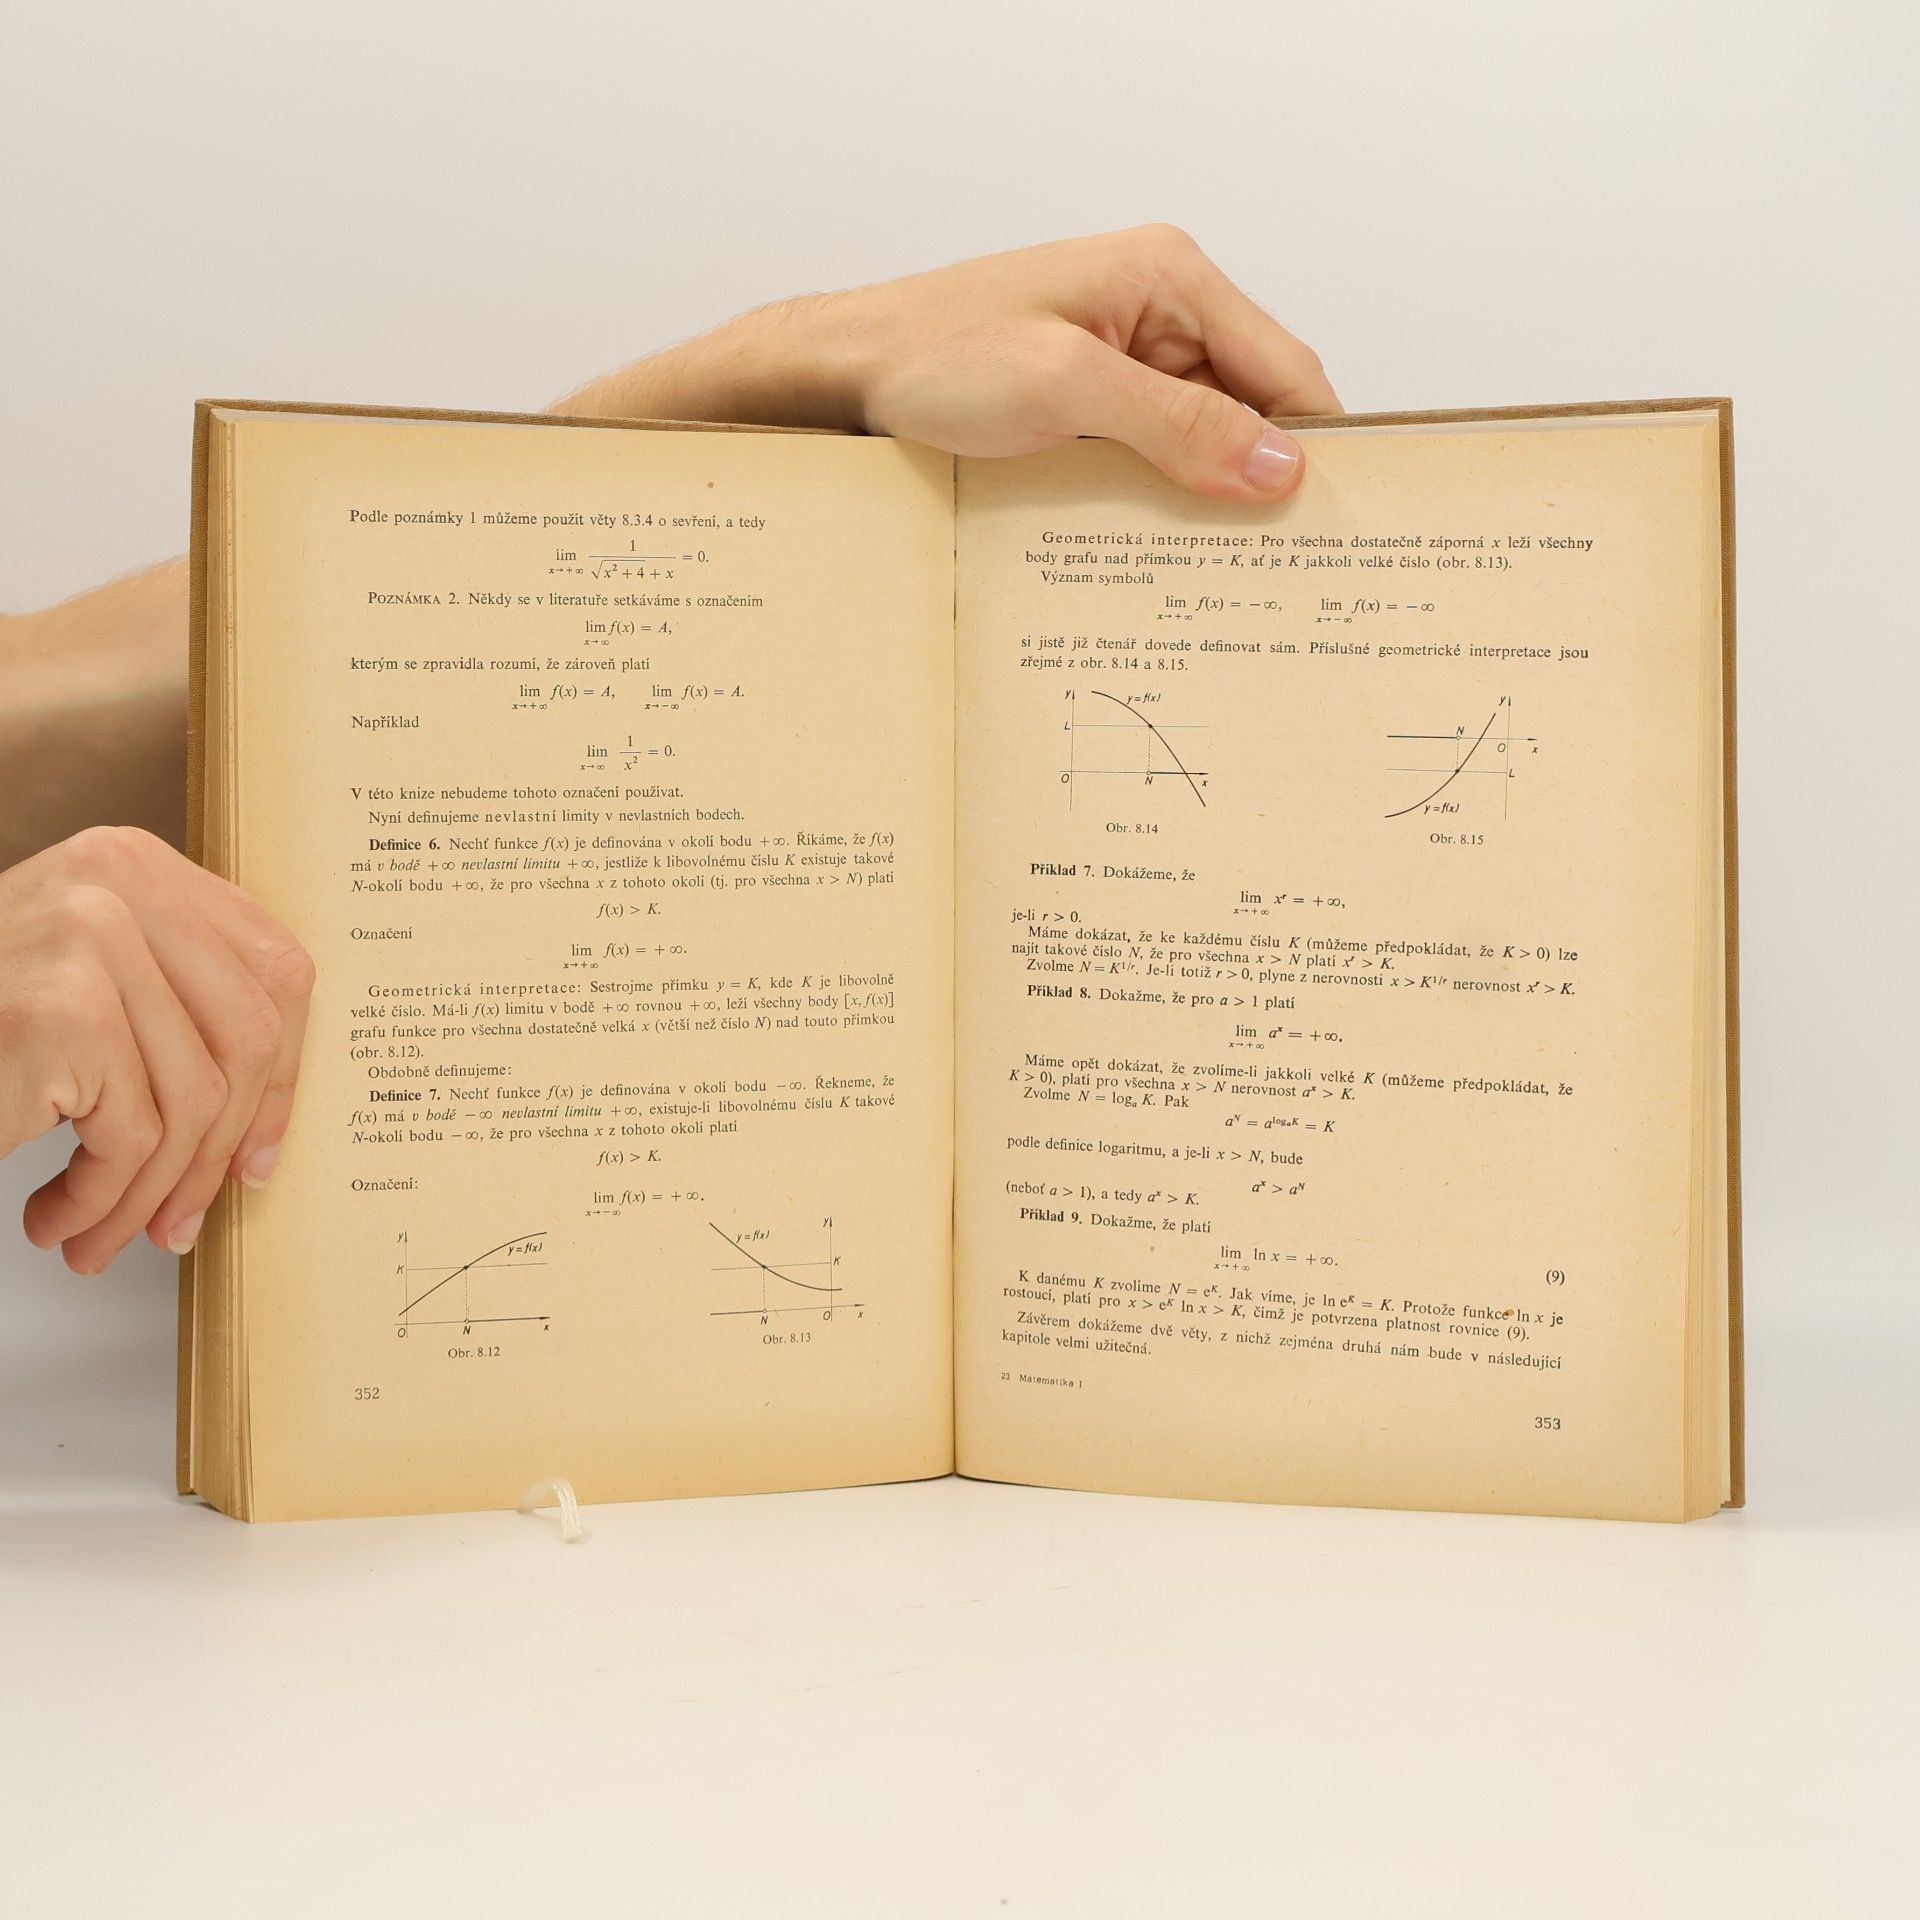 Podle poznámky 1 můžeme použít věty 8.3.4 o sevření, a tedy
lim x→+∞ 1/√(x² + 4) + x = 0.
POZNÁMKA 2. Někdy se v literatuře setkáváme s označením
lim x→∞ f(x) = A,
kterým se zpravidla rozumí, že zároveň platí
lim x→+∞ f(x) = A, lim x→−∞ f(x) = A.
Například
lim x→∞ 1/x² = 0.
V této knize nebudeme tohoto označení používat.
Nyní definujeme nevlastní limity v nevlastních bodech.
Definice 6. Nechť funkce f(x) je definována v okolí bodu +∞. Říkáme, že f(x)
má v bodě +∞ nevlastní limitu +∞, jestliže k libovolnému číslu K existuje takové
N-okolí bodu +∞, že pro všechna x z tohoto okolí (tj. pro všechna x > N) platí
f(x) > K.
Označení
lim x→+∞ f(x) = +∞.
Geometrická interpretace: Sestrojme přímku y = K, kde K je libovolně
velké číslo. Má-li f(x) limitu v bodě +∞ rovnou +∞, leží všechny body [x, f(x)]
grafu funkce pro všechna dostatečně velká x (větší než číslo N) nad touto přímkou
(obr. 8.12).
Obdobně definujeme:
Definice 7. Nechť funkce f(x) je definována v okolí bodu −∞. Řekneme, že
f(x) má v bodě −∞ nevlastní limitu +∞, existuje-li libovolnému číslu K takové
N-okolí bodu −∞, že pro všechna x z tohoto okolí platí
f(x) > K.
Označení:
lim x→−∞ f(x) = +∞.
y K y=f(x) O N x
Obr. 8.12
y K y=f(x) N O x
Obr. 8.13
352
Geometrická interpretace: Pro všechna dostatečně záporná x leží všechny
body grafu nad přímkou y = K, ať je K jakkoli velké číslo (obr. 8.13).
Význam symbolů
lim x→+∞ f(x) = −∞, lim x→−∞ f(x) = −∞
si jistě již čtenář dovede definovat sám. Příslušné geometrické interpretace jsou
zřejmé z obr. 8.14 a 8.15.
y y=f(x) L O N x
Obr. 8.14
y N O x L y=f(x)
Obr. 8.15
Příklad 7. Dokážeme, že
lim x→+∞ xʳ = +∞,
je-li r > 0.
Máme dokázat, že ke každému číslu K (můžeme předpokládat, že K > 0) lze
najít takové číslo N, že pro všechna x > N platí xʳ > K.
Zvolme N = K^1/r. Je-li totiž r > 0, plyne z nerovnosti x > K^1/r nerovnost xʳ > K.
Příklad 8. Dokažme, že pro a > 1 platí
lim x→+∞ aˣ = +∞.
Máme opět dokázat, že zvolíme-li jakkoli velké K (můžeme předpokládat, že
K > 0), platí pro všechna x > N nerovnost aˣ > K.
Zvolme N = logₐ K. Pak
a^N = a^logₐK = K
podle definice logaritmu, a je-li x > N, bude
aˣ > a^N
(neboť a > 1), a tedy aˣ > K.
Příklad 9. Dokažme, že platí
lim x→+∞ ln x = +∞. (9)
K danému K zvolíme N = e^K. Jak víme, je ln e^K = K. Protože funkce ln x je
rostoucí, platí pro x > e^K ln x > K, čímž je potvrzena platnost rovnice (9).
Závěrem dokážeme dvě věty, z nichž zejména druhá nám bude v následující
kapitole velmi užitečná.
23 Matematika I
353